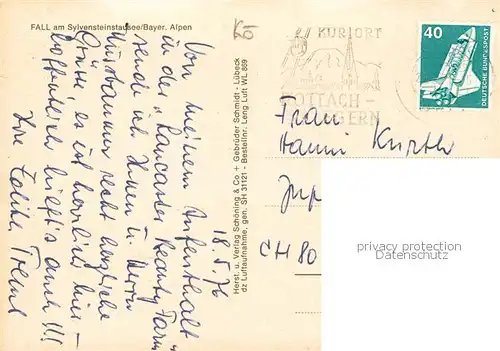 FALL am Sylvensteinstausee/Bayer. Alpen
18.5.76
Von meinem Aufenthalt
in der "Lancaster Beauty Farm"
sende ich Ihnen u. Herrn
recht herzliche
Grüsse, es ist herrlich hier -
hoffentlich
auch !!!
Ihre
Herst. u. Verlag Schöning & Co + Gebrüder Schmidt - Lübeck
dz Luftaufnahme, gen. SH 31121 - Bestellnr. Leng Luft WL 869
KURORT
ROTTACH-
EGERN
40
DEUTSCHE BUNDESPOST
Frau
Hanni Kurth
CH 80
privacy protection
Datenschutz